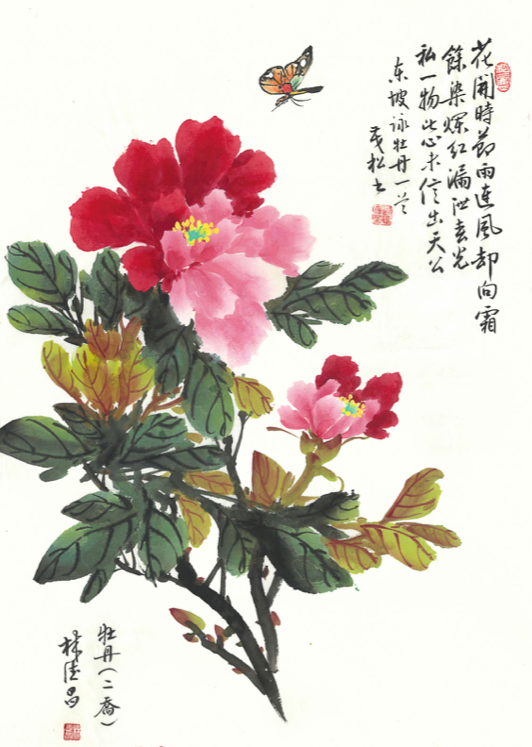 花開時節雨連風却向霜
餘染爛红漏泄春光
私一物此心未信出天公
东坡咏牡丹一首
茂松书
牡丹(二喬)
林德昌